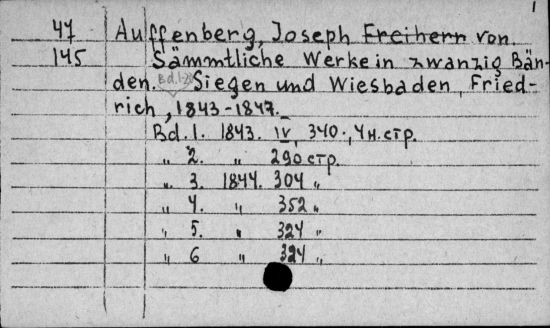 1
47 Auffenberg, Joseph Freiherr von.
145 Sämmtliche Werke in zwanzig Bän-
den. Bd.1-20 Siegen und Wiesbaden, Fried-
rich, 1843-1847.
Bd. 1. 1843. IV, 340., 4 н. стр.
„ 2. „ 290 стр.
„ 3. 1844. 304 „
„ 4. „ 352 „
„ 5. „ 324 „
„ 6 „ 324 „